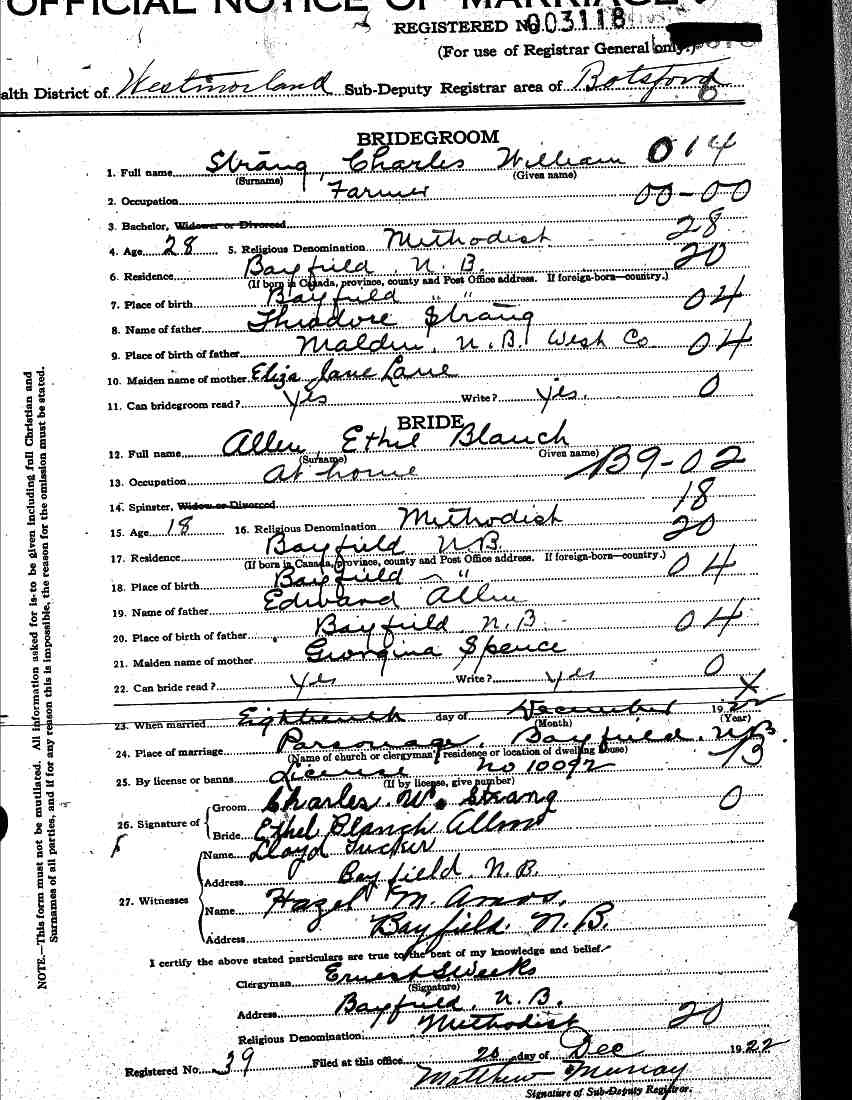 OFFICIAL NOTICE OF MARRIAGE
REGISTERED No. 003118
(For use of Registrar General only.)
alth District of Westmorland Sub-Deputy Registrar area of Botsford
BRIDEGROOM
1. Full name Strang, Charles William 014
(Surname) (Given name)
2. Occupation Farmer 00-00
3. Bachelor, Widower or Divorced
4. Age 28 5. Religious Denomination Methodist 28
6. Residence Bayfield N.B. 20
(If born in Canada, province, county and Post Office address. If foreign-born—country.)
7. Place of birth Bayfield " " 04
8. Name of father Theodore Strang
9. Place of birth of father Malden, N.B. West Co 04
10. Maiden name of mother Eliza Jane Lane
11. Can bridegroom read? Yes Write? yes. 0
BRIDE
12. Full name Allen, Ethel Blanch
(Surname) Given name)
13. Occupation At home B9-02
14. Spinster, Widow or Divorced 18
15. Age 18 16. Religious Denomination Methodist 20
17. Residence Bayfield N.B.
(If born in Canada, province, county and Post Office address. If foreign-born—country.)
18. Place of birth Bayfield " 04
19. Name of father Edward Allen
20. Place of birth of father Bayfield N.B. 04
21. Maiden name of mother Georgina Spence
22. Can bride read? Yes Write? yes 0
23. When married Eighteenth day of December 1922
(Month) (Year)
24. Place of marriage Parsonage, Bayfield, N.B.
(Name of church or clergyman's residence or location of dwelling house)
25. By license or banns License No 10092 B
(If by license, give number)
26. Signature of Groom Charles. W. Strang 0
Bride Ethel Blanch Allen
27. Witnesses
Name Lloyd Tucker
Address Bayfield, N.B.
Name Hazel M. Amos.
Address Bayfield. N.B.
I certify the above stated particulars are true to the best of my knowledge and belief.
Clergyman Ernest S. Weeks
(Signature)
Address Bayfield, N.B.
Religious Denomination Methodist 20
Registered No. 39 Filed at this office 20 day of Dec 1922
Matthew Murray
Signature of Sub-Deputy Registrar.
NOTE.—This form must not be mutilated. All information asked for is to be given including full Christian and
Surnames of all parties, and if for any reason this is impossible, the reason for the omission must be stated.